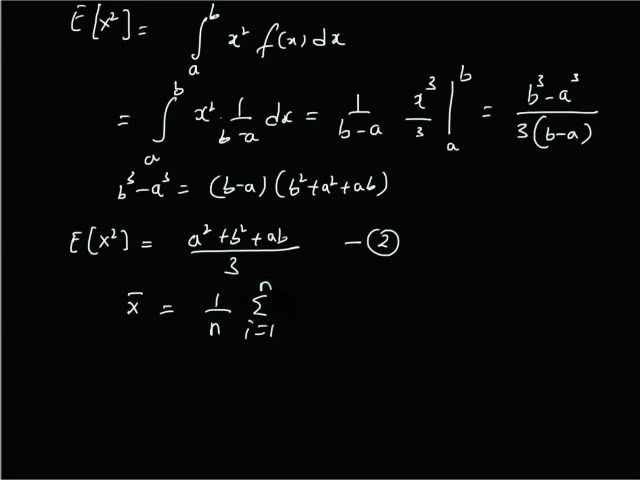 E[x²] = ∫ₐᵇ x² f(x) dx
= ∫ₐᵇ x² · 1/(b-a) dx = 1/(b-a) x³/3 |ₐᵇ = (b³-a³)/(3(b-a))
b³-a³ = (b-a)(b²+a²+ab)
E[x²] = (a²+b²+ab)/3 - ②
x̄ = 1/n Σⁿᵢ₌₁